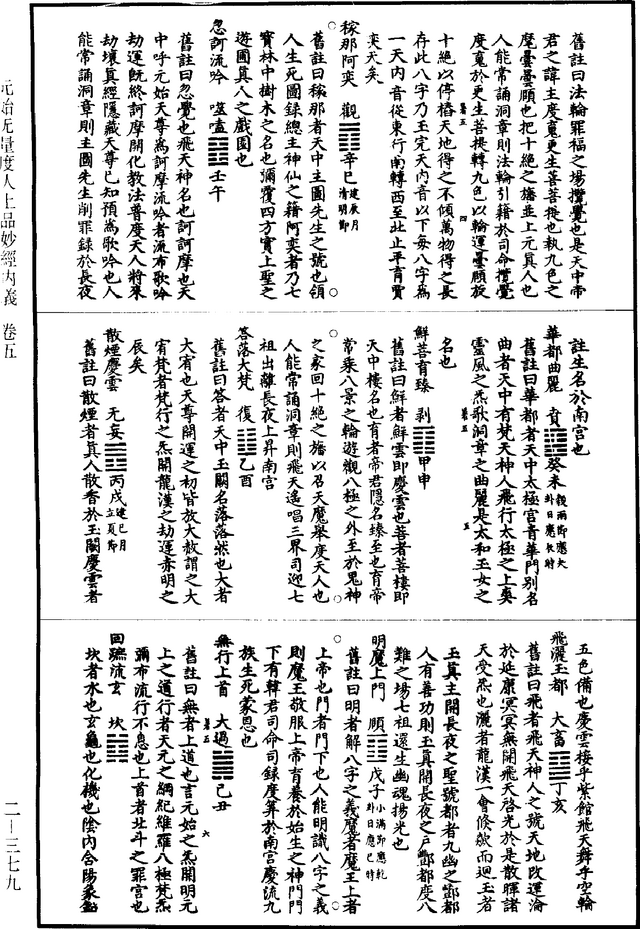 舊註曰法輪罪福之場攬覺也是天中帝
君之諱主度蒐更生菩菩提也執九色之
麾曇曇願也把十絕之旛並上元真人也
人能常誦洞章則法輪引籍於司命攬覺
度蒐於更生菩提轉九色以輪運曇願旋
十絕以停樁天地得之不傾萬物得之長
存此八字乃玉完天內音以下每八字為
一天內音從東行南轉西至北止平育賈
奕天矣
稼那阿奕 觀䷓辛巳建辰月清明節
舊註曰稼那者天中主圖先生之號也領
人生死圖錄總主神仙之籍阿奕者乃七
寶林中樹木之名也彌覆四方實上聖之
遊圃真人之戲園也
忽訶流吟 噬嗑䷔壬午
舊註曰忽覺也飛天神名也訶訶摩也天
中呼元始天尊為訶摩流吟者流布歌吟
劫運旣終訶摩開化教法普度天人將來
劫壞真經隱藏天尊已知預為歌吟也人
能常誦洞章則主圖先生削罪錄於長夜
註生名於南宮也
華都曲麗 賁䷕癸未穀雨節應大卦日應長時
舊註曰華都者天中太極宮青華門別名
曲者天中有梵天神人飛行太極之上奧
靈風之炁歌洞章之曲麗是太和玉女之
名也
鮮菩育臻 剝䷖甲申
舊註曰鮮者鮮雲即慶雲也菩者菩樓即
天中樓名也育者帝君隱名臻至也育帝
常乘八景之輪遊觀八極之外至於鬼神
之家回十絕之旛以召天魔舉度天人也
人能常誦洞章則飛天遙唱三界司迎七
祖出離長夜上昇南宮
答落大梵 復䷗乙酉
舊註曰答者天中玉闕名落落然也大者
大宥也天尊開運之初皆放大赦謂之大
宥梵者梵行之炁開龍漢之劫運赤明之
辰矣
散煙慶雲 无妄䷘丙戌建巳月立夏節
舊註曰散煙者真人散香於玉閣慶雲者
五色備也慶雲樓乎紫館飛天舞乎空輪
飛灑玉都 大畜䷙丁亥
舊註曰飛者飛天神人之號天地改運淪
於延康冥冥無開飛天啓光於是散暉諸
天受炁也灑者龍漢一會倏歘而迴玉者
玉真主開長夜之聖號都者九幽之酆都
人有善功則玉真開長夜之戶酆都度八
難之場七祖還生幽魂揚光也
明魔上門 頤䷚戊子小滿節應乾卦日應巳時
舊註曰明者解八字之義魔者魔王上者
上帝也門者門下也人能明識八字之義
則魔王敬服上帝育養於始生之神門門
下有韓君司命司錄度筭於南宮慶流九
族生死蒙恩也
無行上首 大過䷛己丑
舊註曰無者上道也言元始之炁開明元
上之道行者天元之綱紀維羅八極梵炁
彌布流行不息也上首者北斗之罪宮也
回蹠流玄 坎䷜
坎者水也玄龜也化機也陰內合陽象
元始无量度人上品妙經內義 卷五
二－三七九